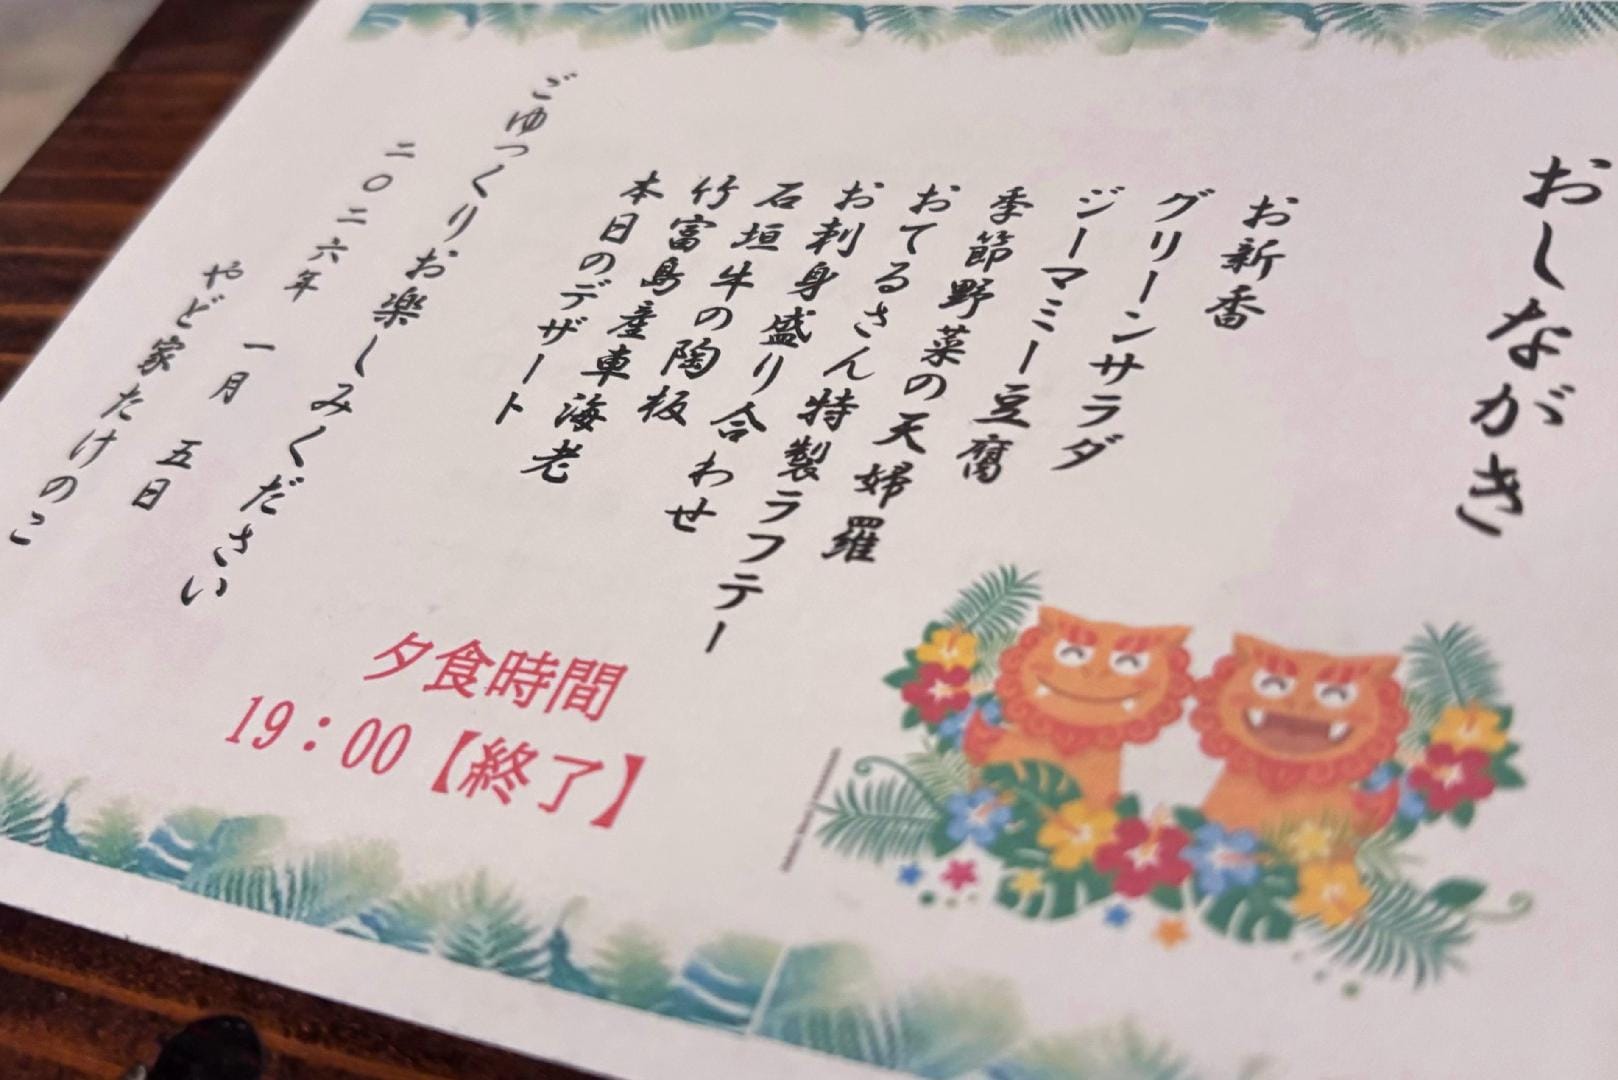 おしながき
お新香
グリーンサラダ
ジーマミー豆腐
季節野菜の天婦羅
おてるさん特製ラフテー
お刺身盛り合わせ
石垣牛の陶板
竹富島産車海老
本日のデザート
ごゆっくりお楽しみください
二〇二六年 一月 五日
やど家たけのこ
夕食時間
19：00【終了】